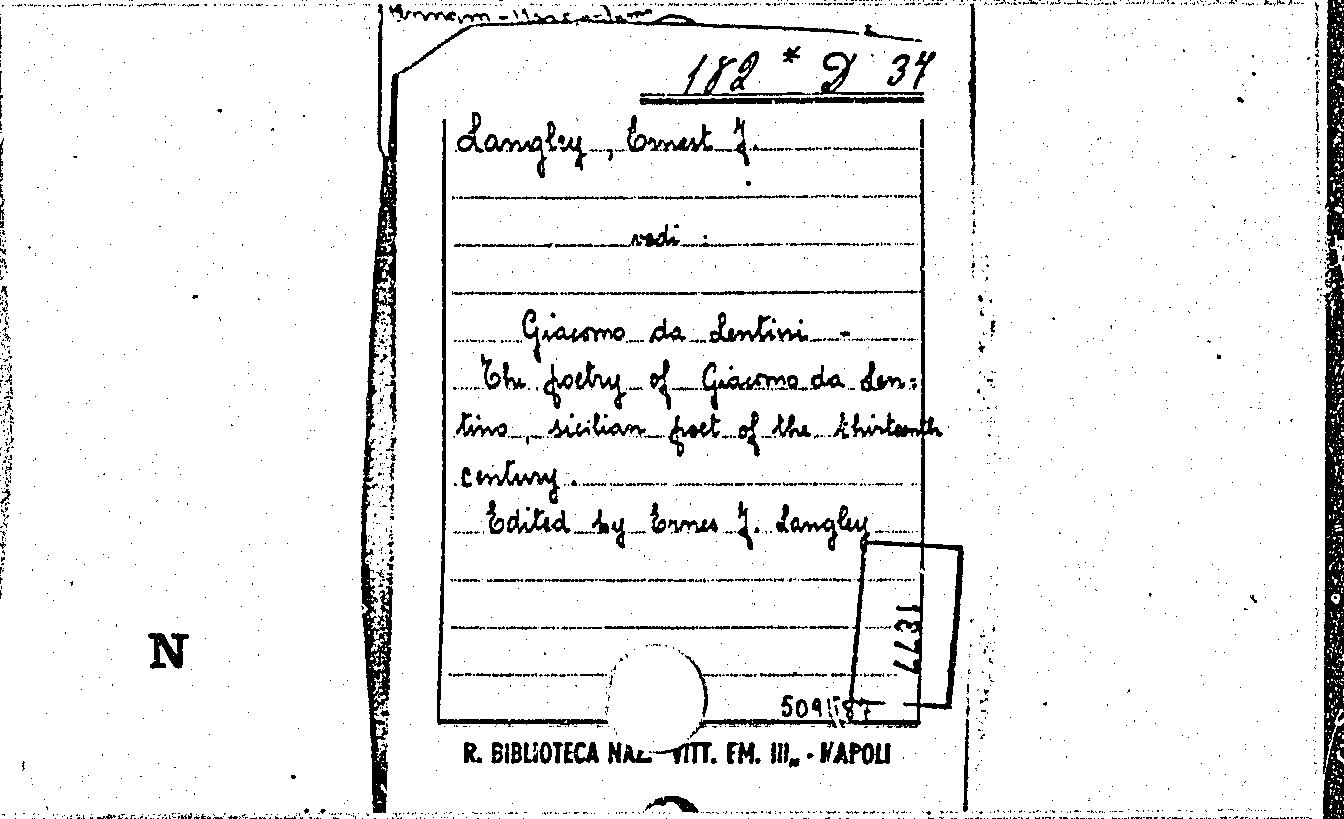 182 * D 34
Langley, Ernest J.
vedi:
Giacomo da Lentini -
The poetry of Giacomo da Len=
tino, sicilian poet of the thirteenth
century.
Edited by Ernes J. Langley
N
R. BIBLIOTECA NAZ. VITT. EM. III„ - NAPOLI